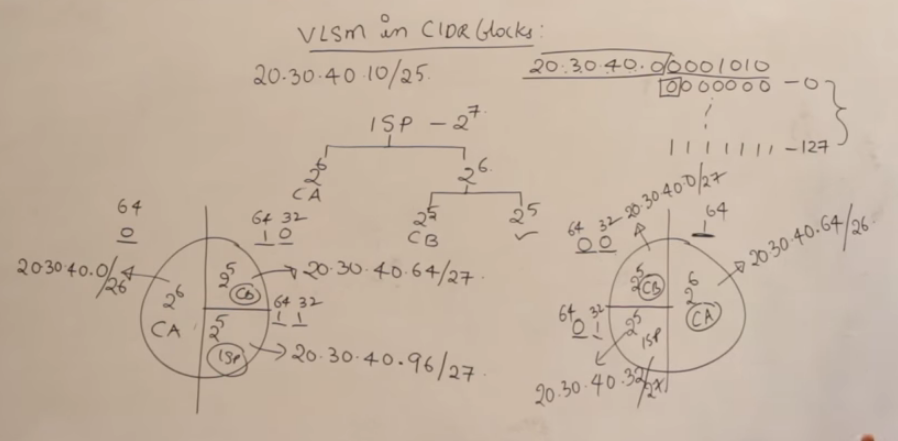 VLSM in CIDR blocks:
20.30.40.10/25
20.30.40.00001010
0000000 - 0
1111111 - 127
ISP - 2⁷
2⁶ 2⁶
CA
2⁵ 2⁵
CB ✓
64
0
64 32
1 0
20.30.40.0/26
2⁶
CA
2⁵
CB
20.30.40.64/27
64 32
1 1
2⁵
ISP
20.30.40.96/27
64 32
0 0
20.30.40.0/27
64
1
20.30.40.64/26
2⁵
CB
2⁶
CA
64 32
0 1
2⁵
ISP
20.30.40.32/27